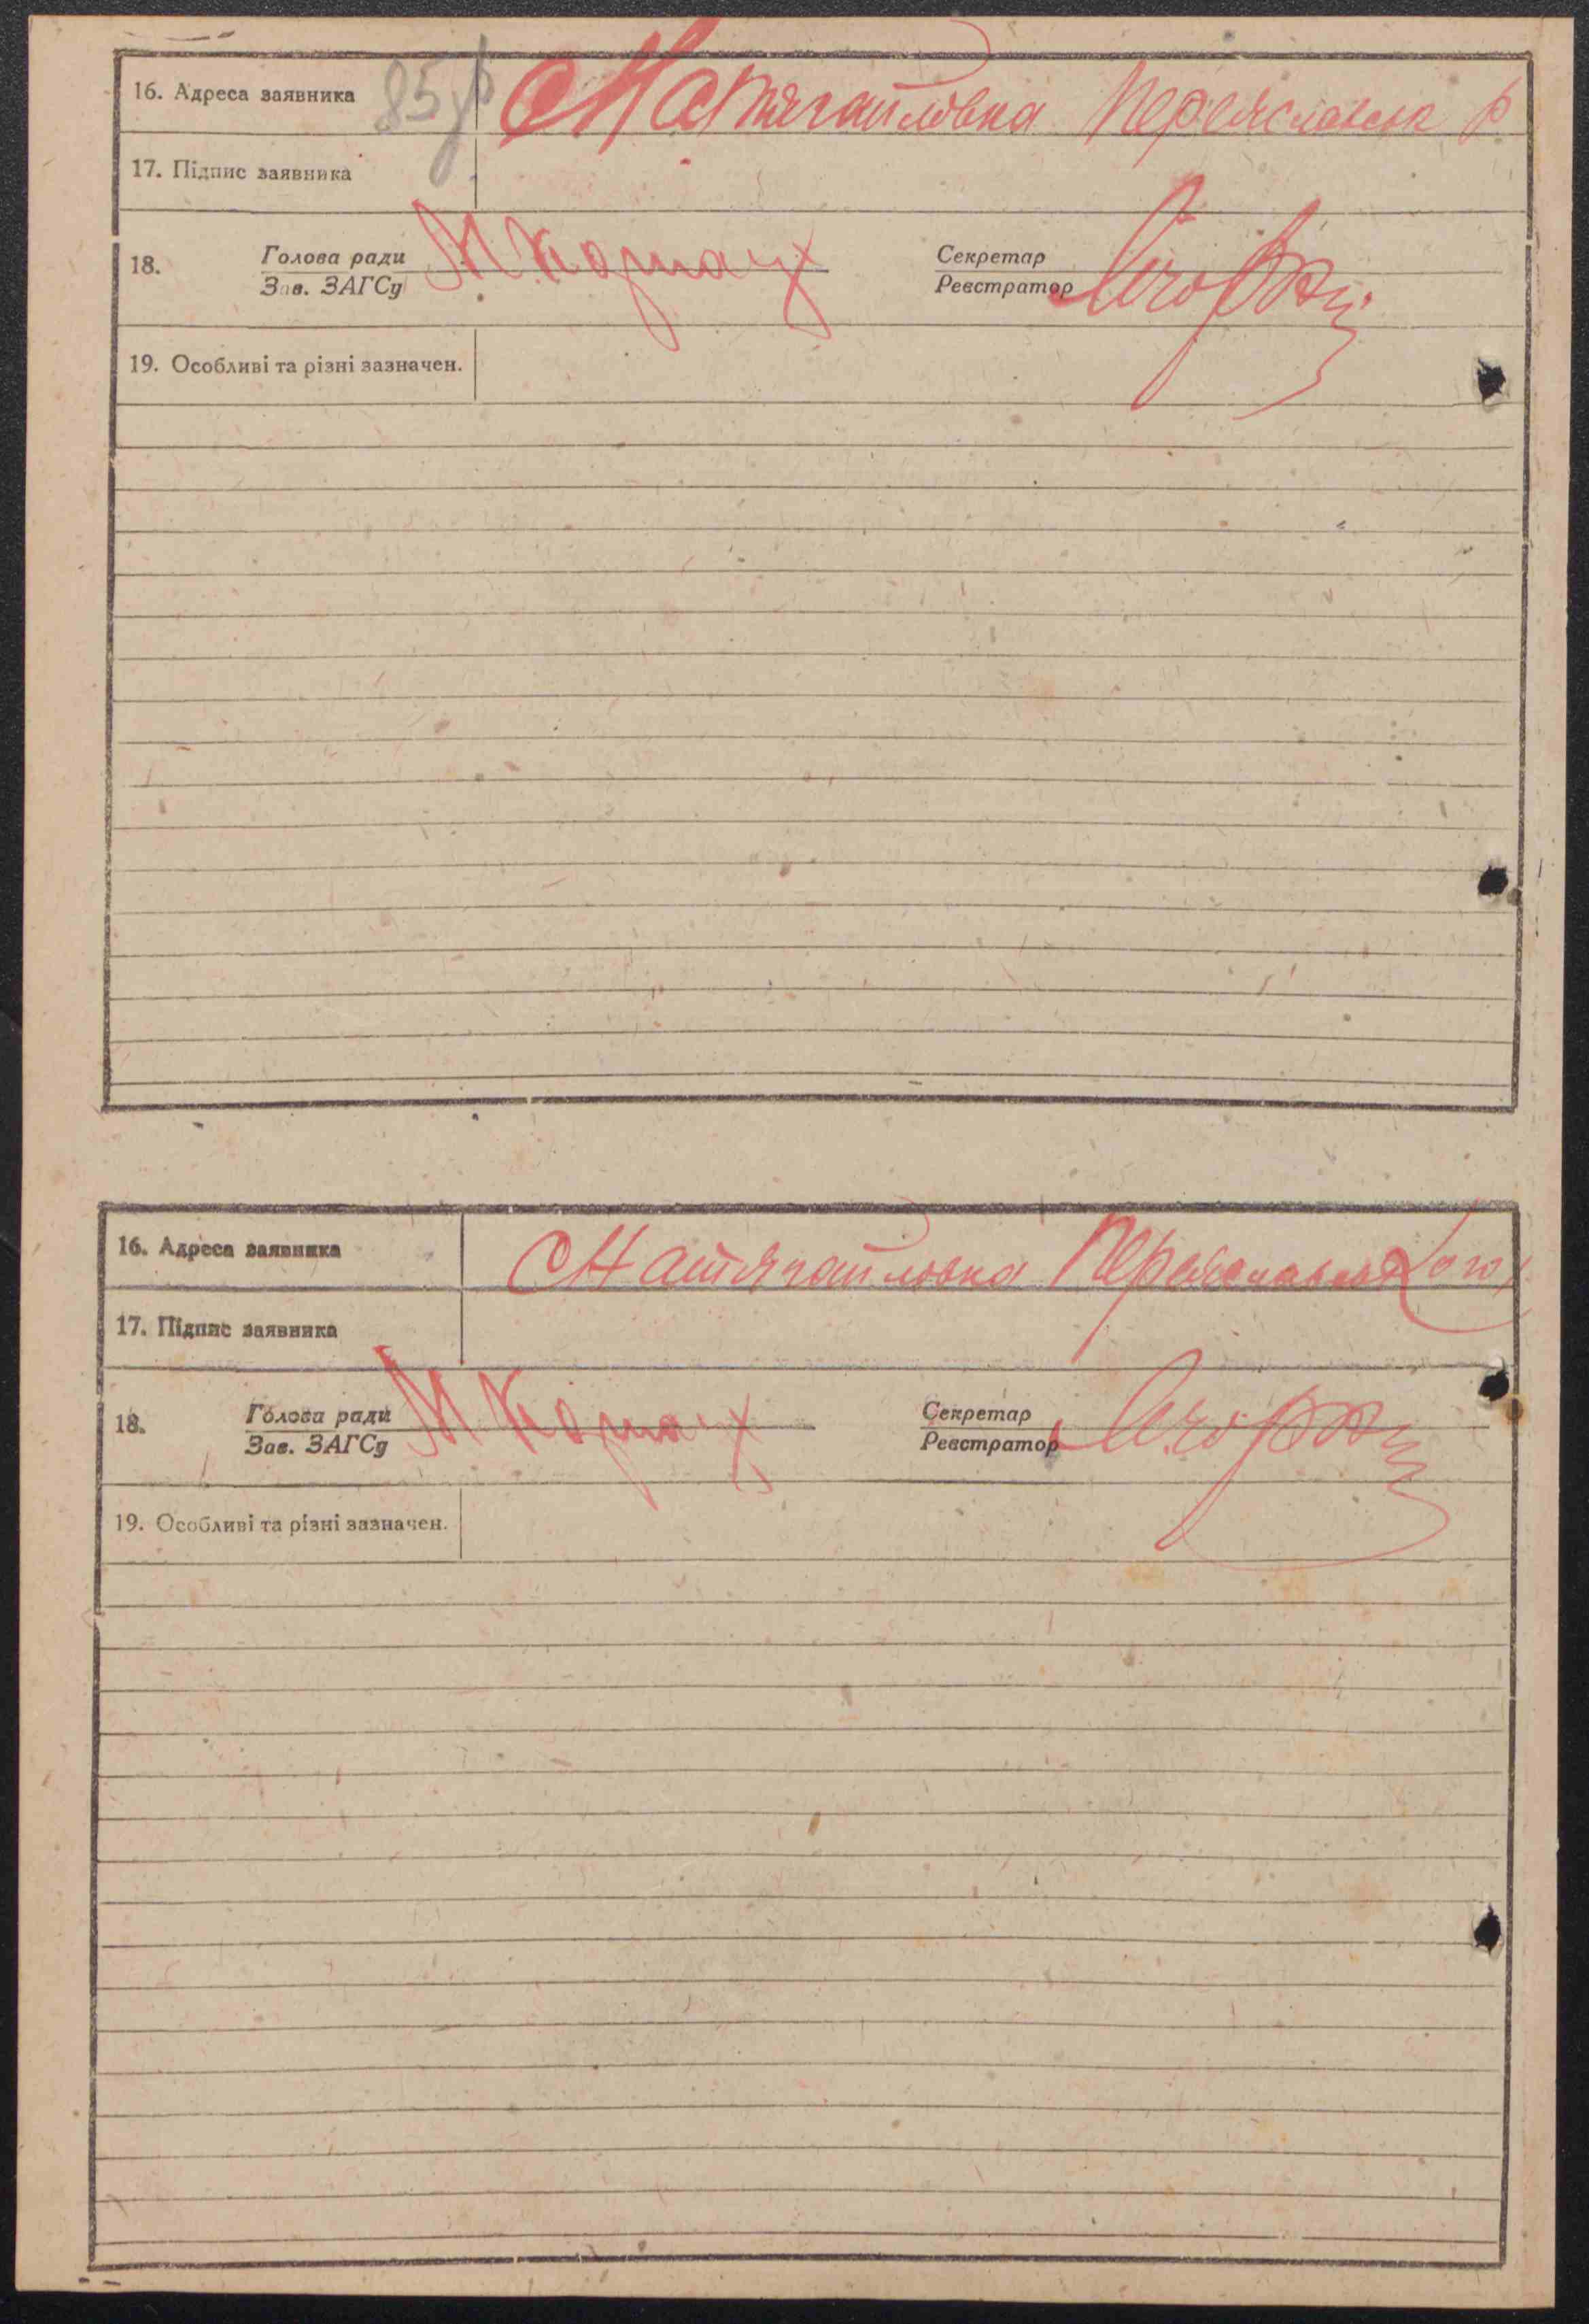 16. Адреса заявника 85 Натягайловка Переяславськ р
17. Підпис заявника
18. Голова ради Секретар
Зав. ЗАГСу Реєстратор
19. Особливі та різні зазначен.
16. Адреса заявника Натягайловка Переяславського
17. Підпис заявника
18. Голова ради Секретар
Зав. ЗАГСу Реєстратор
19. Особливі та різні зазначен.